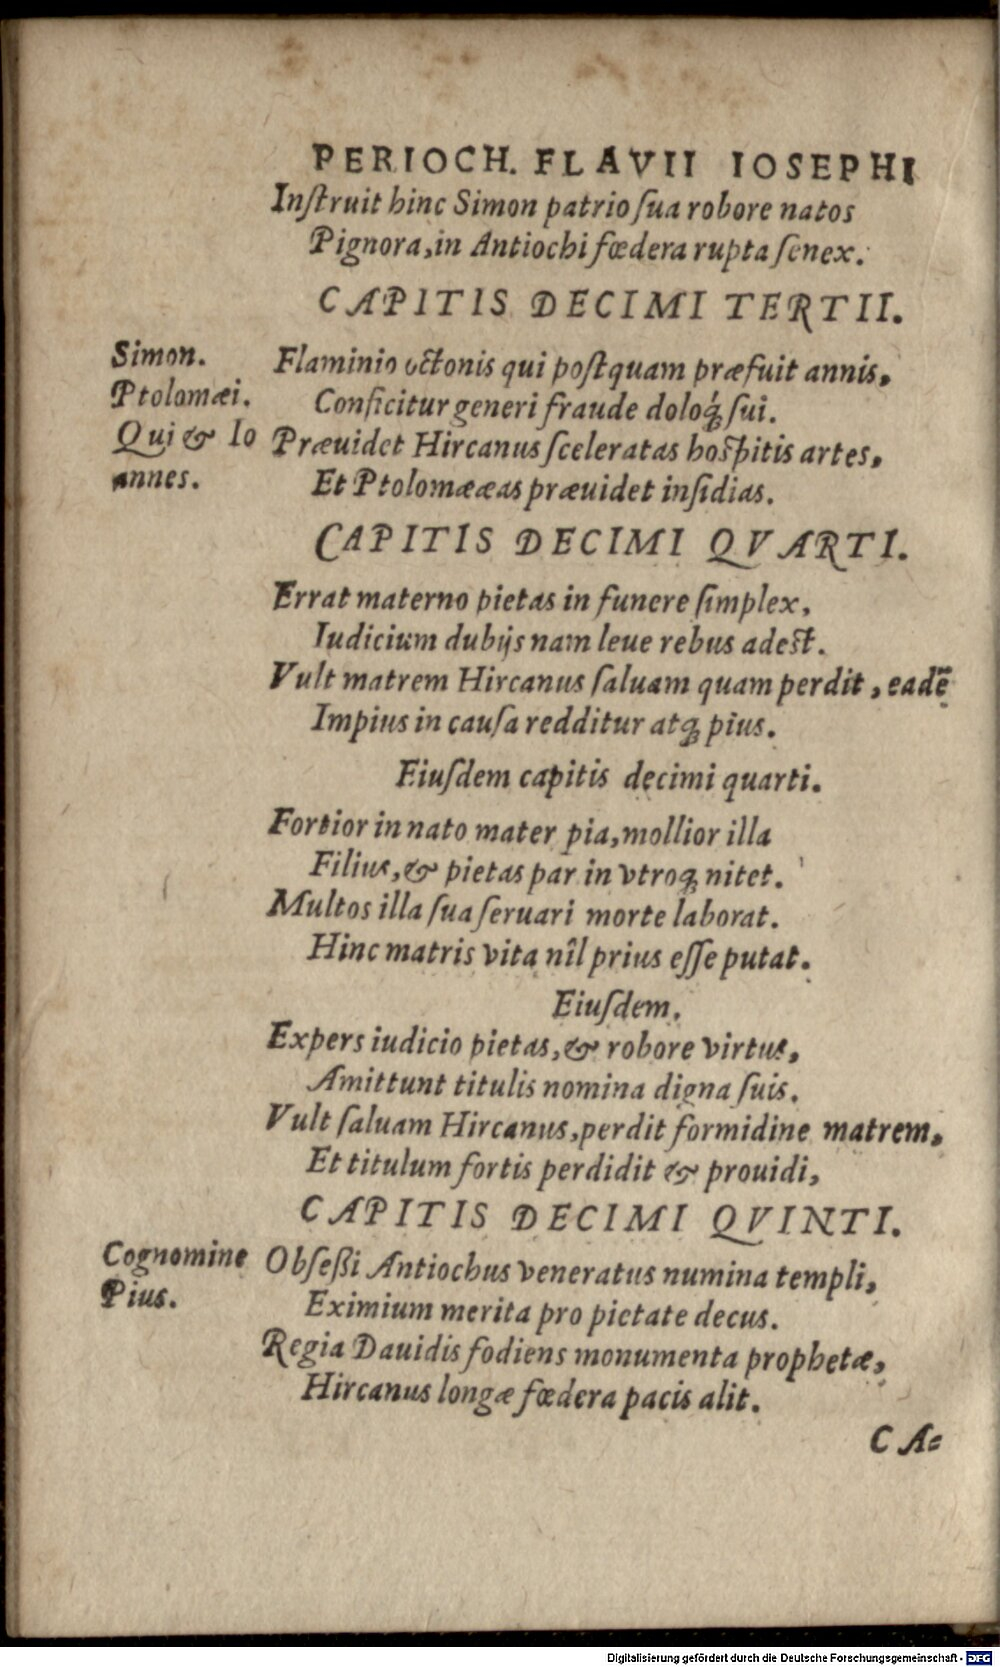 PERIOCH. FLAVII IOSEPHI
Inſtruit hinc Simon patrio ſua robore natos
Pignora, in Antiochi fœdera rupta ſenex.
CAPITIS DECIMI TERTII.
Simon.
Flaminio octonis qui poſtquam præfuit annis,
Ptolomæi.
Conficitur generi fraude doloq́; ſui.
Qui & Io
Præuidet Hircanus ſceleratas hoſpitis artes,
annes.
Et Ptolomææas præuidet inſidias.
CAPITIS DECIMI QVARTI.
Errat materno pietas in funere ſimplex,
Iudicium dubijs nam leue rebus adeſt.
Vult matrem Hircanus ſaluam quam perdit, eadē
Impius in cauſa redditur atq; pius.
Eiuſdem capitis decimi quarti.
Fortior in nato mater pia, mollior illa
Filius, & pietas par in vtroq; nitet.
Multos illa ſua ſeruari morte laborat.
Hinc matris vita nîl prius eſſe putat.
Eiuſdem.
Expers iudicio pietas, & robore virtus,
Amittunt titulis nomina digna ſuis.
Vult ſaluam Hircanus, perdit formidine matrem,
Et titulum fortis perdidit & prouidi,
CAPITIS DECIMI QVINTI.
Cognomine
Obſeßi Antiochus veneratus numina templi,
Pius.
Eximium merita pro pietate decus.
Regia Dauidis fodiens monumenta prophetæ,
Hircanus longæ fœdera pacis alit.
CA=
Digitalisierung gefördert durch die Deutsche Forschungsgemeinschaft - DFG